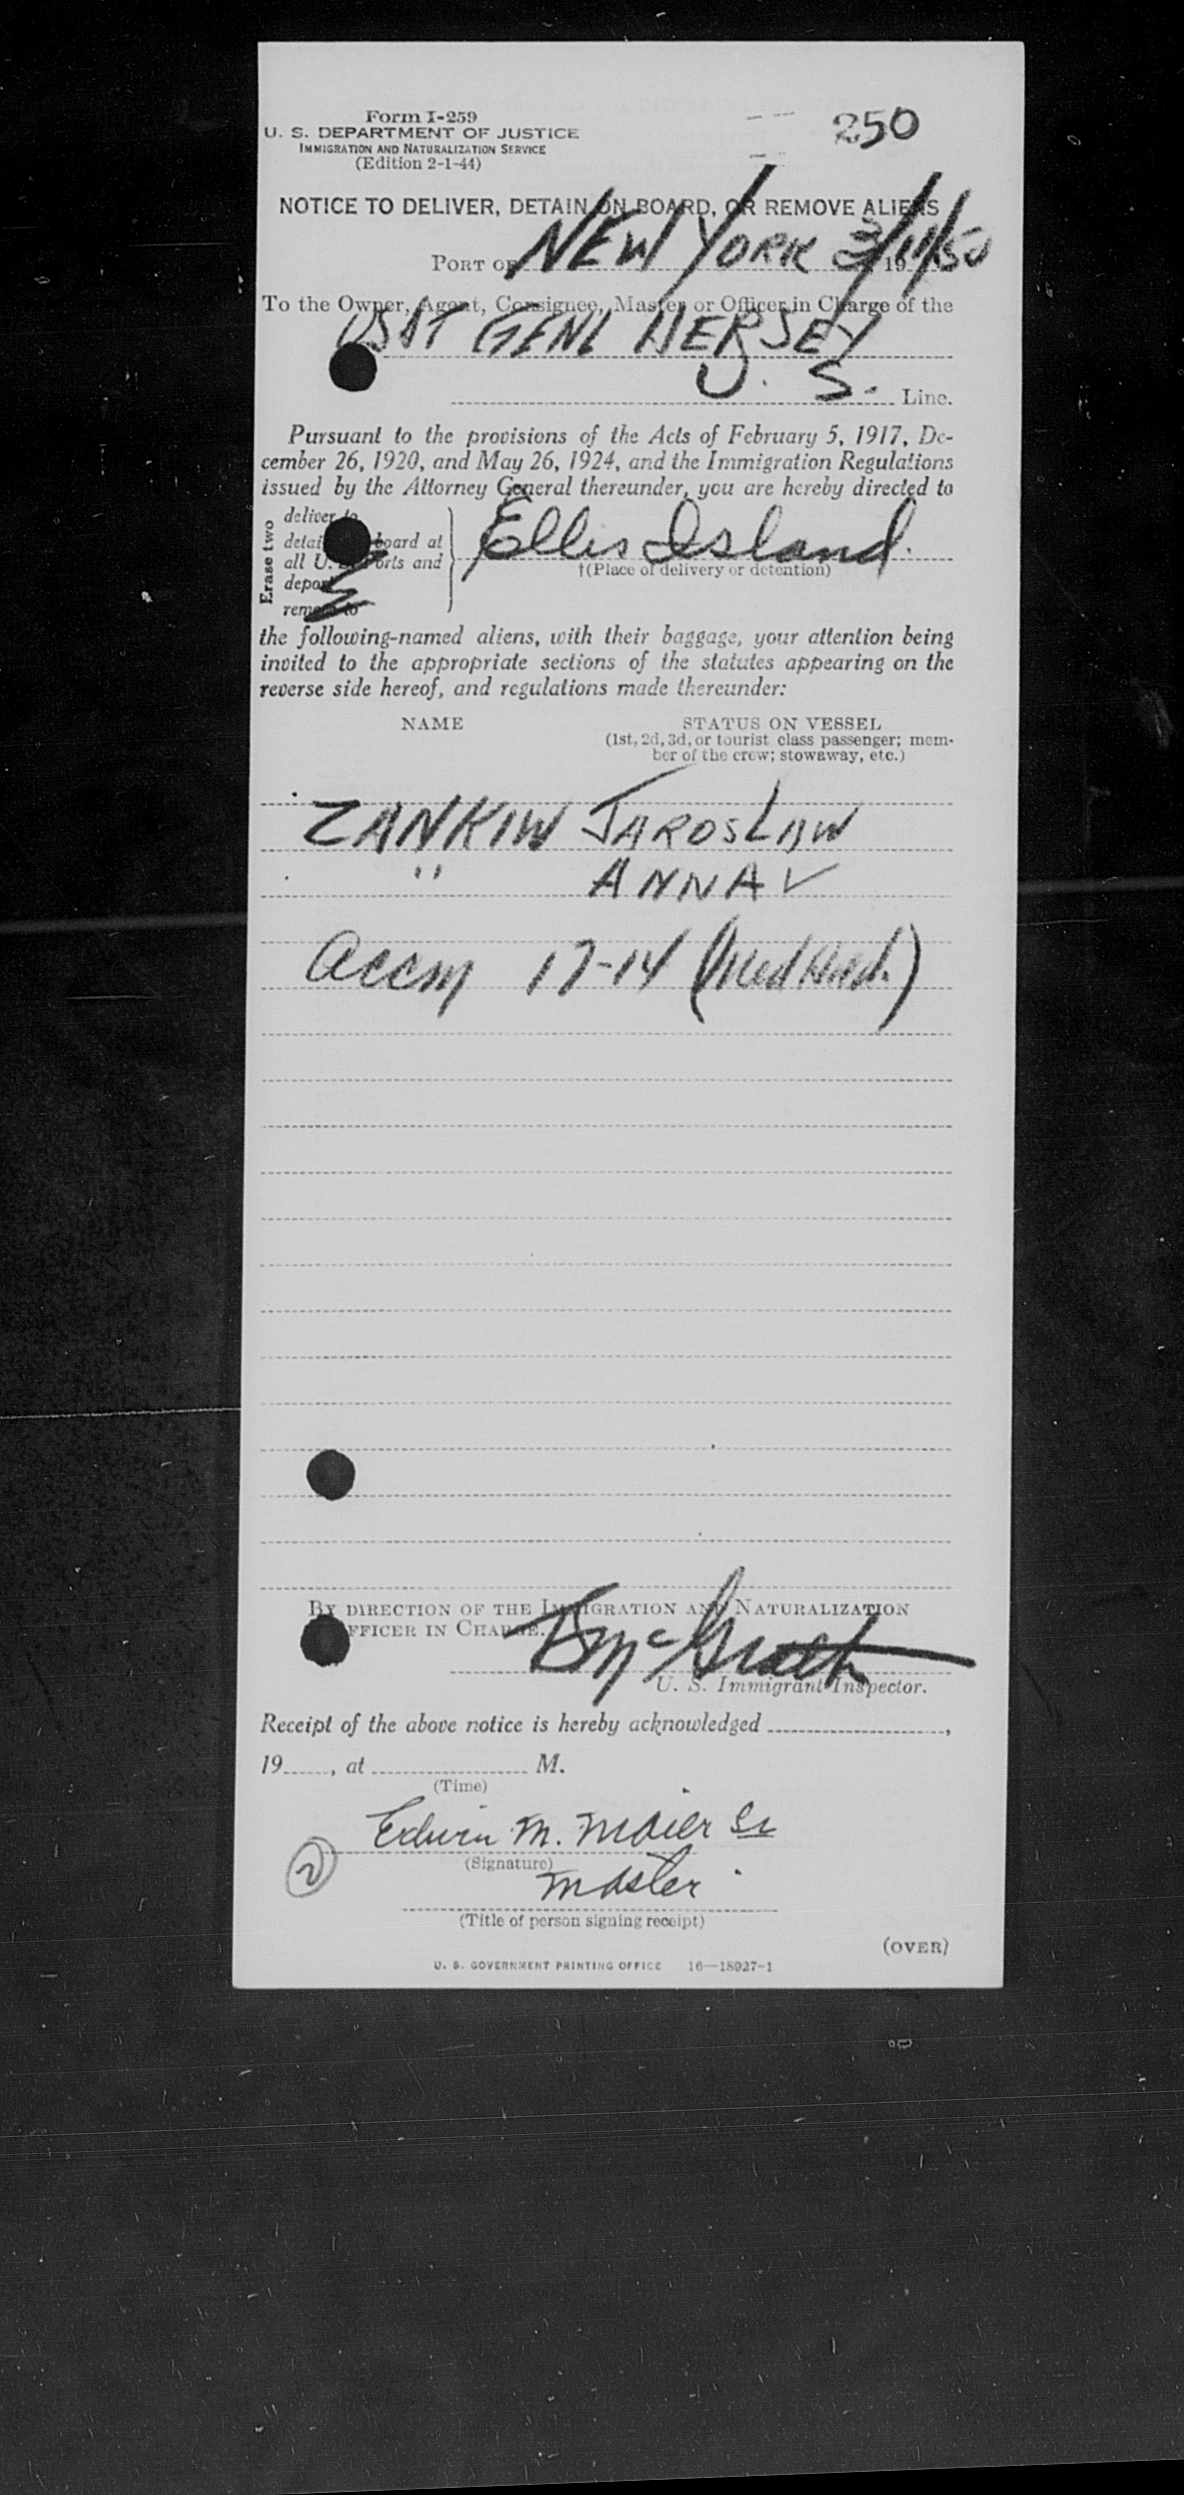 Form I-259
250
U. S. DEPARTMENT OF JUSTICE
IMMIGRATION AND NATURALIZATION SERVICE
(Edition 2-1-44)
NOTICE TO DELIVER, DETAIN ON BOARD, OR REMOVE ALIENS
PORT OF NEW YORK 3/11/50 19
To the Owner, Agent, Consignee, Master or Officer in Charge of the
USAT GENL HERSEY
U. S. Line.
Pursuant to the provisions of the Acts of February 5, 1917, De-
cember 26, 1920, and May 26, 1924, and the Immigration Regulations
issued by the Attorney General thereunder, you are hereby directed to
Erase two
deliver to
detain board at
all U. S. ports and
deport
remove to
Ellis Island.
†(Place of delivery or detention)
the following-named aliens, with their baggage, your attention being
invited to the appropriate sections of the statutes appearing on the
reverse side hereof, and regulations made thereunder:
NAME STATUS ON VESSEL
(1st, 2d, 3d, or tourist class passenger; mem-
ber of the crew; stowaway, etc.)
ZANKIW JAROSLAW
" ANNA ✓
accm 17-14 (Med Hld.)
BY DIRECTION OF THE IMMIGRATION AND NATURALIZATION
OFFICER IN CHARGE.
McGrath
U. S. Immigrant Inspector.
Receipt of the above notice is hereby acknowledged ,
19 , at M.
(Time)
Edwin M. Maier Sr
(Signature)
2
Master
(Title of person signing receipt)
(OVER)
U. S. GOVERNMENT PRINTING OFFICE 16—18927-1